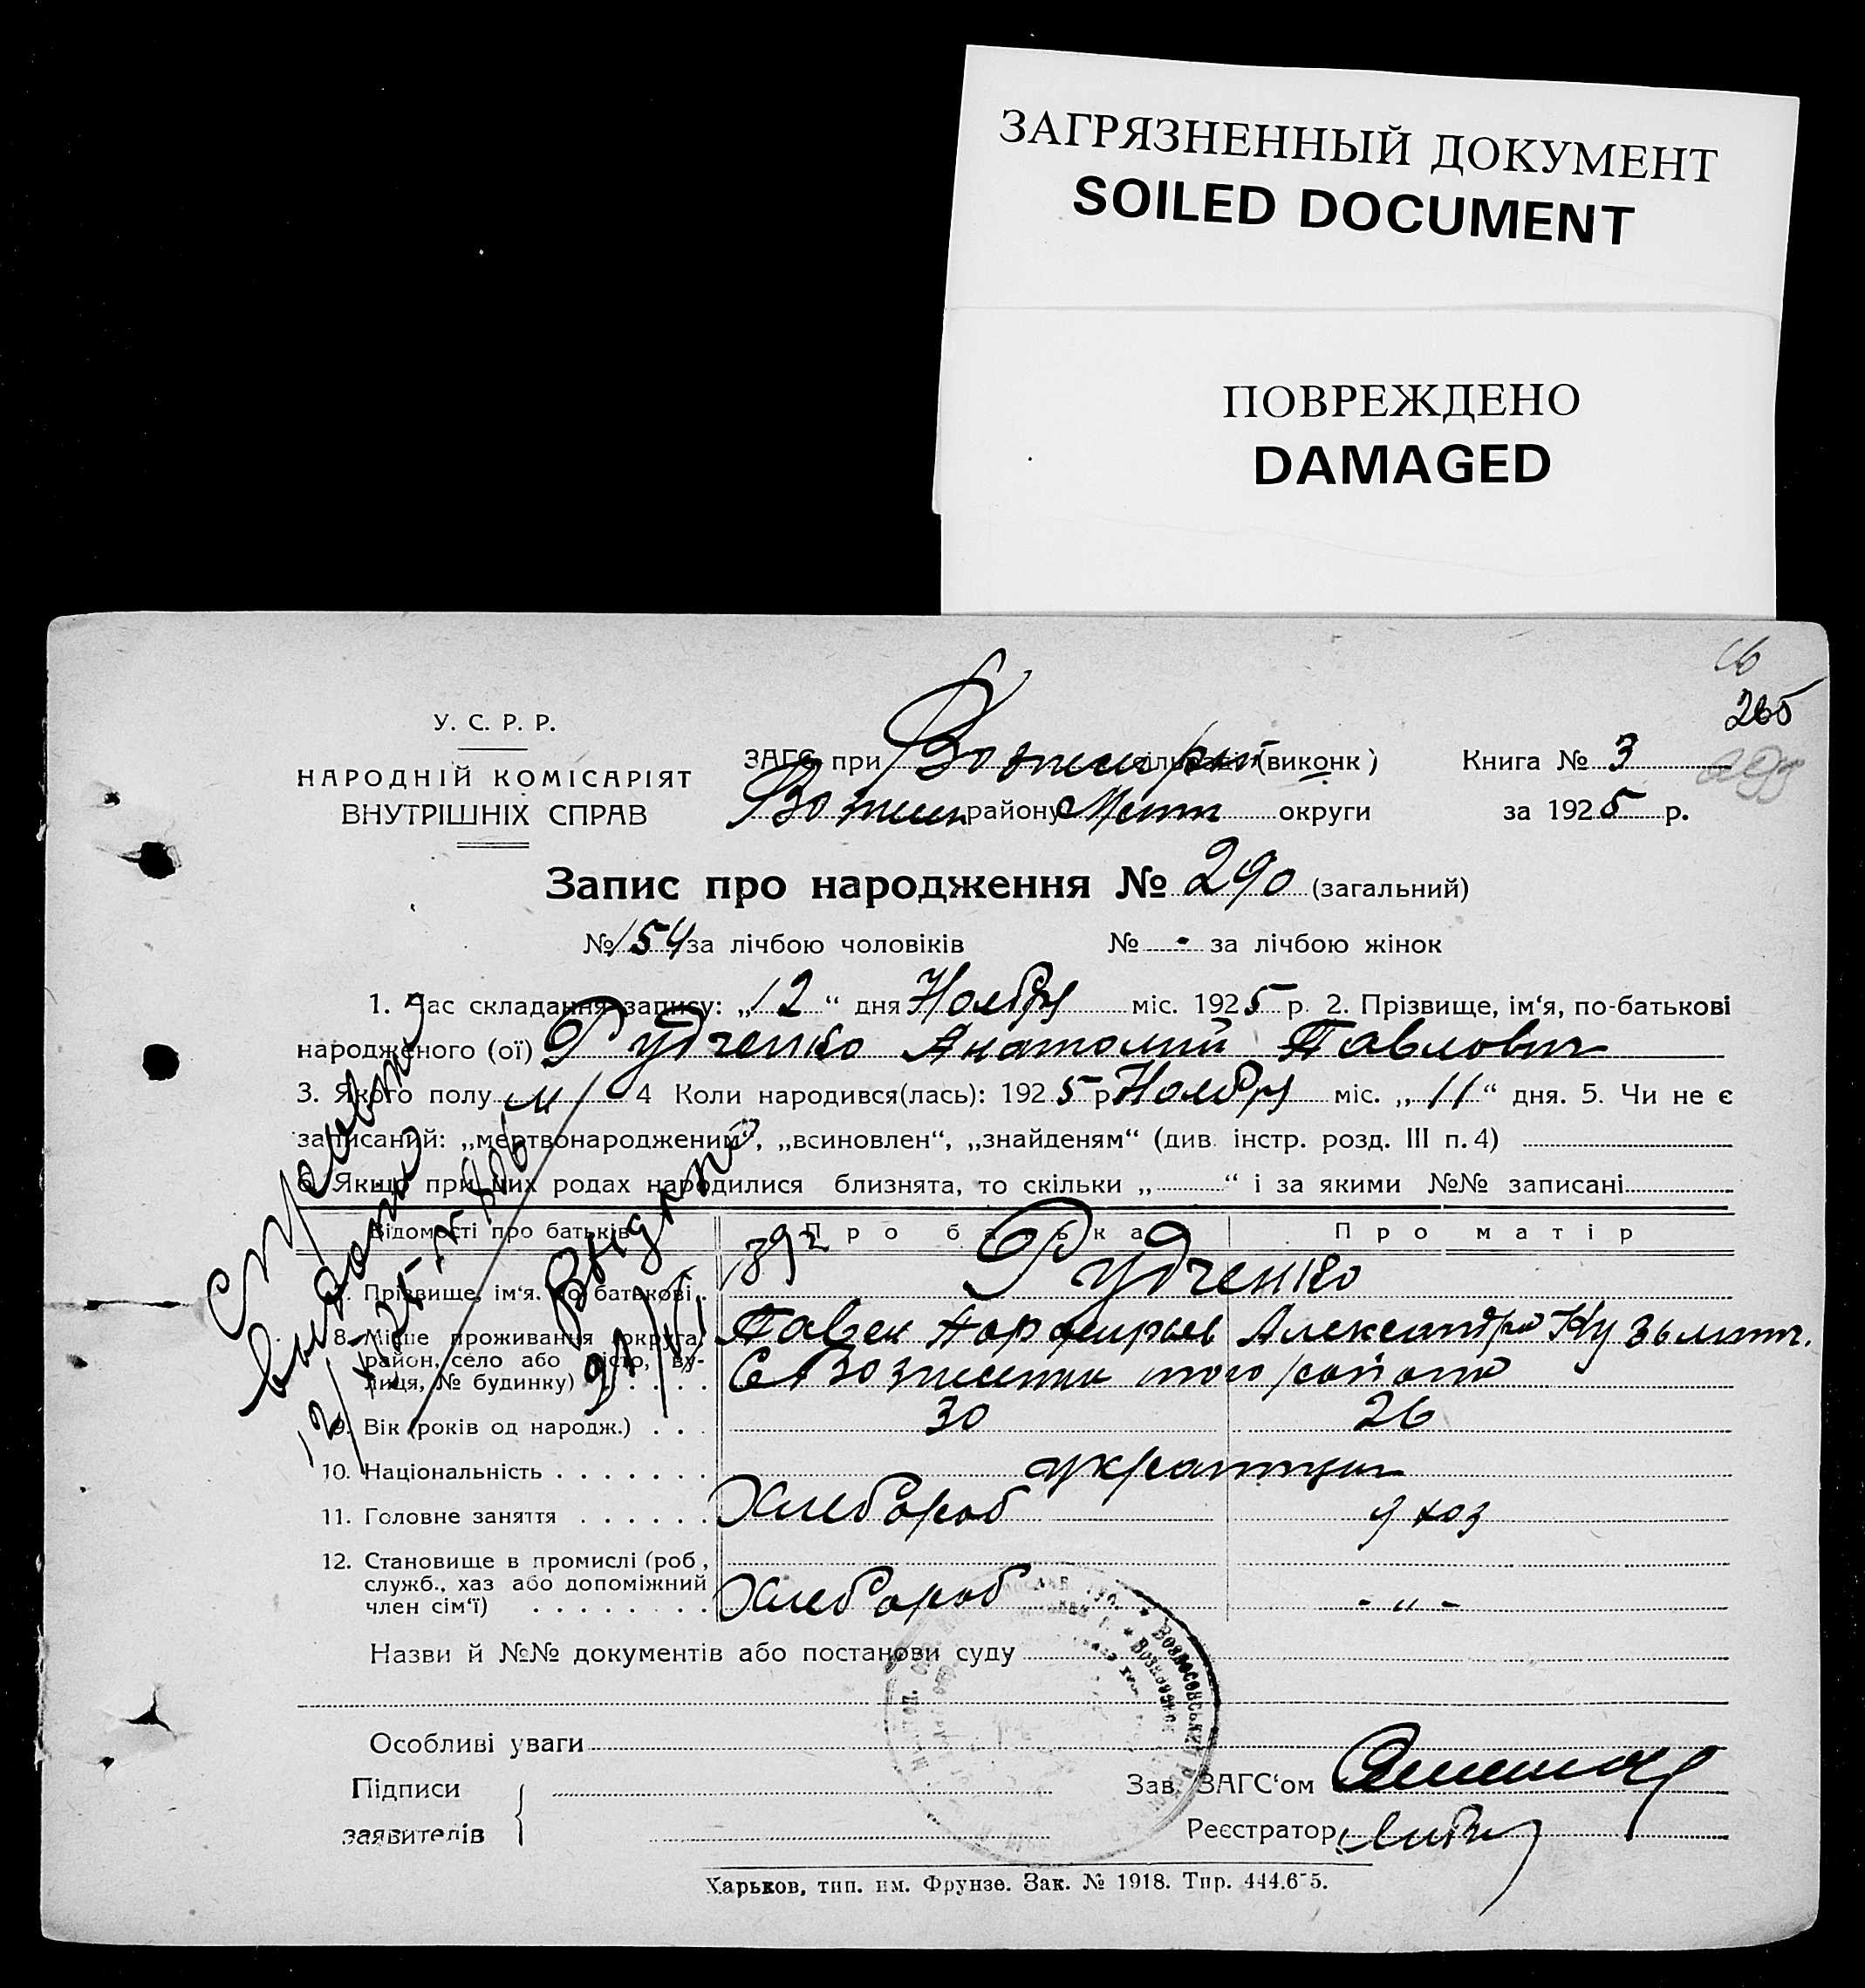 ЗАГРЯЗНЕННЫЙ ДОКУМЕНТ
SOILED DOCUMENT
ПОВРЕЖДЕНО
DAMAGED
265
У. С. Р. Р.
НАРОДНІЙ КОМІСАРІЯТ
ВНУТРІШНІХ СПРАВ
ЗАГС при (виконк)
району Мелит округи
Книга № 3
за 1925 р.
Запис про народження № 290 (загальний)
№ 154 за лічбою чоловіків № - за лічбою жінок
1. Час складання запису: „12“ дня Ноября міс. 1925 р. 2. Прізвище, ім‘я, по-батькові
народженого (ої) Рудченко Анатолий Павлович
3. Якого полу м 4 Коли народився(лась): 1925 р Ноября міс. „11“ дня. 5. Чи не є
записаний: „мертвонародженим“, „всиновлен“, „знайденям“ (див. інстр. розд. III п. 4)
6. Якщо при цих родах народилися близнята, то скільки „ “ і за якими №№ записані
Відомості про батьків Про батька Про матір
892
7. Прізвище, ім‘я, по батькові Рудченко
Павел Порфирьев Александра Кузьминич.
8. Місце проживання (округа, район, село або місто, вулиця, № будинку) С Вознесенка того района
9. Вік (років од народж.) 30 26
10. Національність украинцы
11. Головне заняття Хлебороб д хоз
12. Становище в промислі (роб, служб., хаз або допоміжний член сім‘ї) Хлебороб - „ -
Назви й №№ документів або постанови суду
Особливі уваги
Підписи
заявителів
Зав. ЗАГС‘ом
Реєстратор
Справка
выдана
Выдан
Харьков, тип. им. Фрунзе. Зак. № 1918. Тир. 444.655.